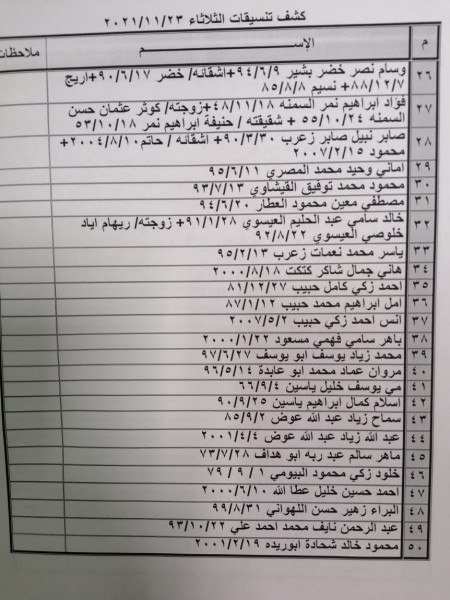 كشف تنسيقات الثلاثاء ٢٠٢١/١١/٢٣
م الإســـــم ملاحظات
٢٦ وسام نصر خضر بشير ٩٤/٦/٩+اشقائه/ خضر ٩٠/٦/١٧+اريج
٨٨/١٢/٧+ نسيم ٨٥/٨/٨
٢٧ فؤاد ابراهيم نمر السمنه ٤٨/١١/١٨+زوجته/ كوثر عثمان حسن
السمنه ٥٥/١٠/٢٤ + شقيقته / حنيفة ابراهيم نمر ٥٣/١٠/١٨
٢٨ صابر نبيل صابر زعرب ٩٠/٣/٣٠+ اشقائه / حاتم ٢٠٠٤/٨/١٠+
محمود ٢٠٠٧/٢/١٥
٢٩ اماني وحيد محمد المصري ٩٥/٦/١١
٣٠ محمود محمد توفيق القيشاوي ٩٣/٧/١٣
٣١ مصطفي معين محمود العطار ٩٤/٦/٢٠
٣٢ خالد سامي عبد الحليم العيسوي ٩١/١/٢٨+ زوجته/ ريهام اياد
خلوصي العيسوي ٩٢/٨/٢٢
٣٣ ياسر محمد نعمات زعرب ٩٥/٢/١٣
٣٤ هاني جمال شاكر كتكت ٢٠٠٠/٨/١٨
٣٥ احمد زكي كامل حبيب ٨١/١٢/٢٧
٣٦ امل ابراهيم محمد حبيب ٨٧/١/١٢
٣٧ انس احمد زكي حبيب ٢٠٠٧/٥/٢
٣٨ باهر سامي فهمي مسعود ٢٠٠٠/١/٢٢
٣٩ محمد زياد يوسف ابو يوسف ٩٧/٦/٢٧
٤٠ مروان عماد محمد ابو عابدة ٩٦/٥/١٤
٤١ مي يوسف خليل ياسين ٦٦/٩/٤
٤٢ اسلام كمال ابراهيم ياسين ٩٠/٩/٢٥
٤٣ سماح زياد عبد الله عوض ٨٥/٩/٢
٤٤ عبد الله زياد عبد الله عوض ٢٠٠١/٤/٤
٤٥ ماهر سالم عبد ربه ابو هداف ٧٣/٧/٢٨
٤٦ خلود زكي محمود البيومي ١ / ٩ / ٧٩
٤٧ احمد حسين خليل عطا الله ٢٠٠٠/٦/١٠
٤٨ البراء زهير حسن اللهواني ٩٩/٨/٣١
٤٩ عبد الرحمن نايف محمد احمد علي ٩٣/١٠/٢٢
٥٠ محمود خالد شحادة ابوريده ٢٠٠١/٢/١٩